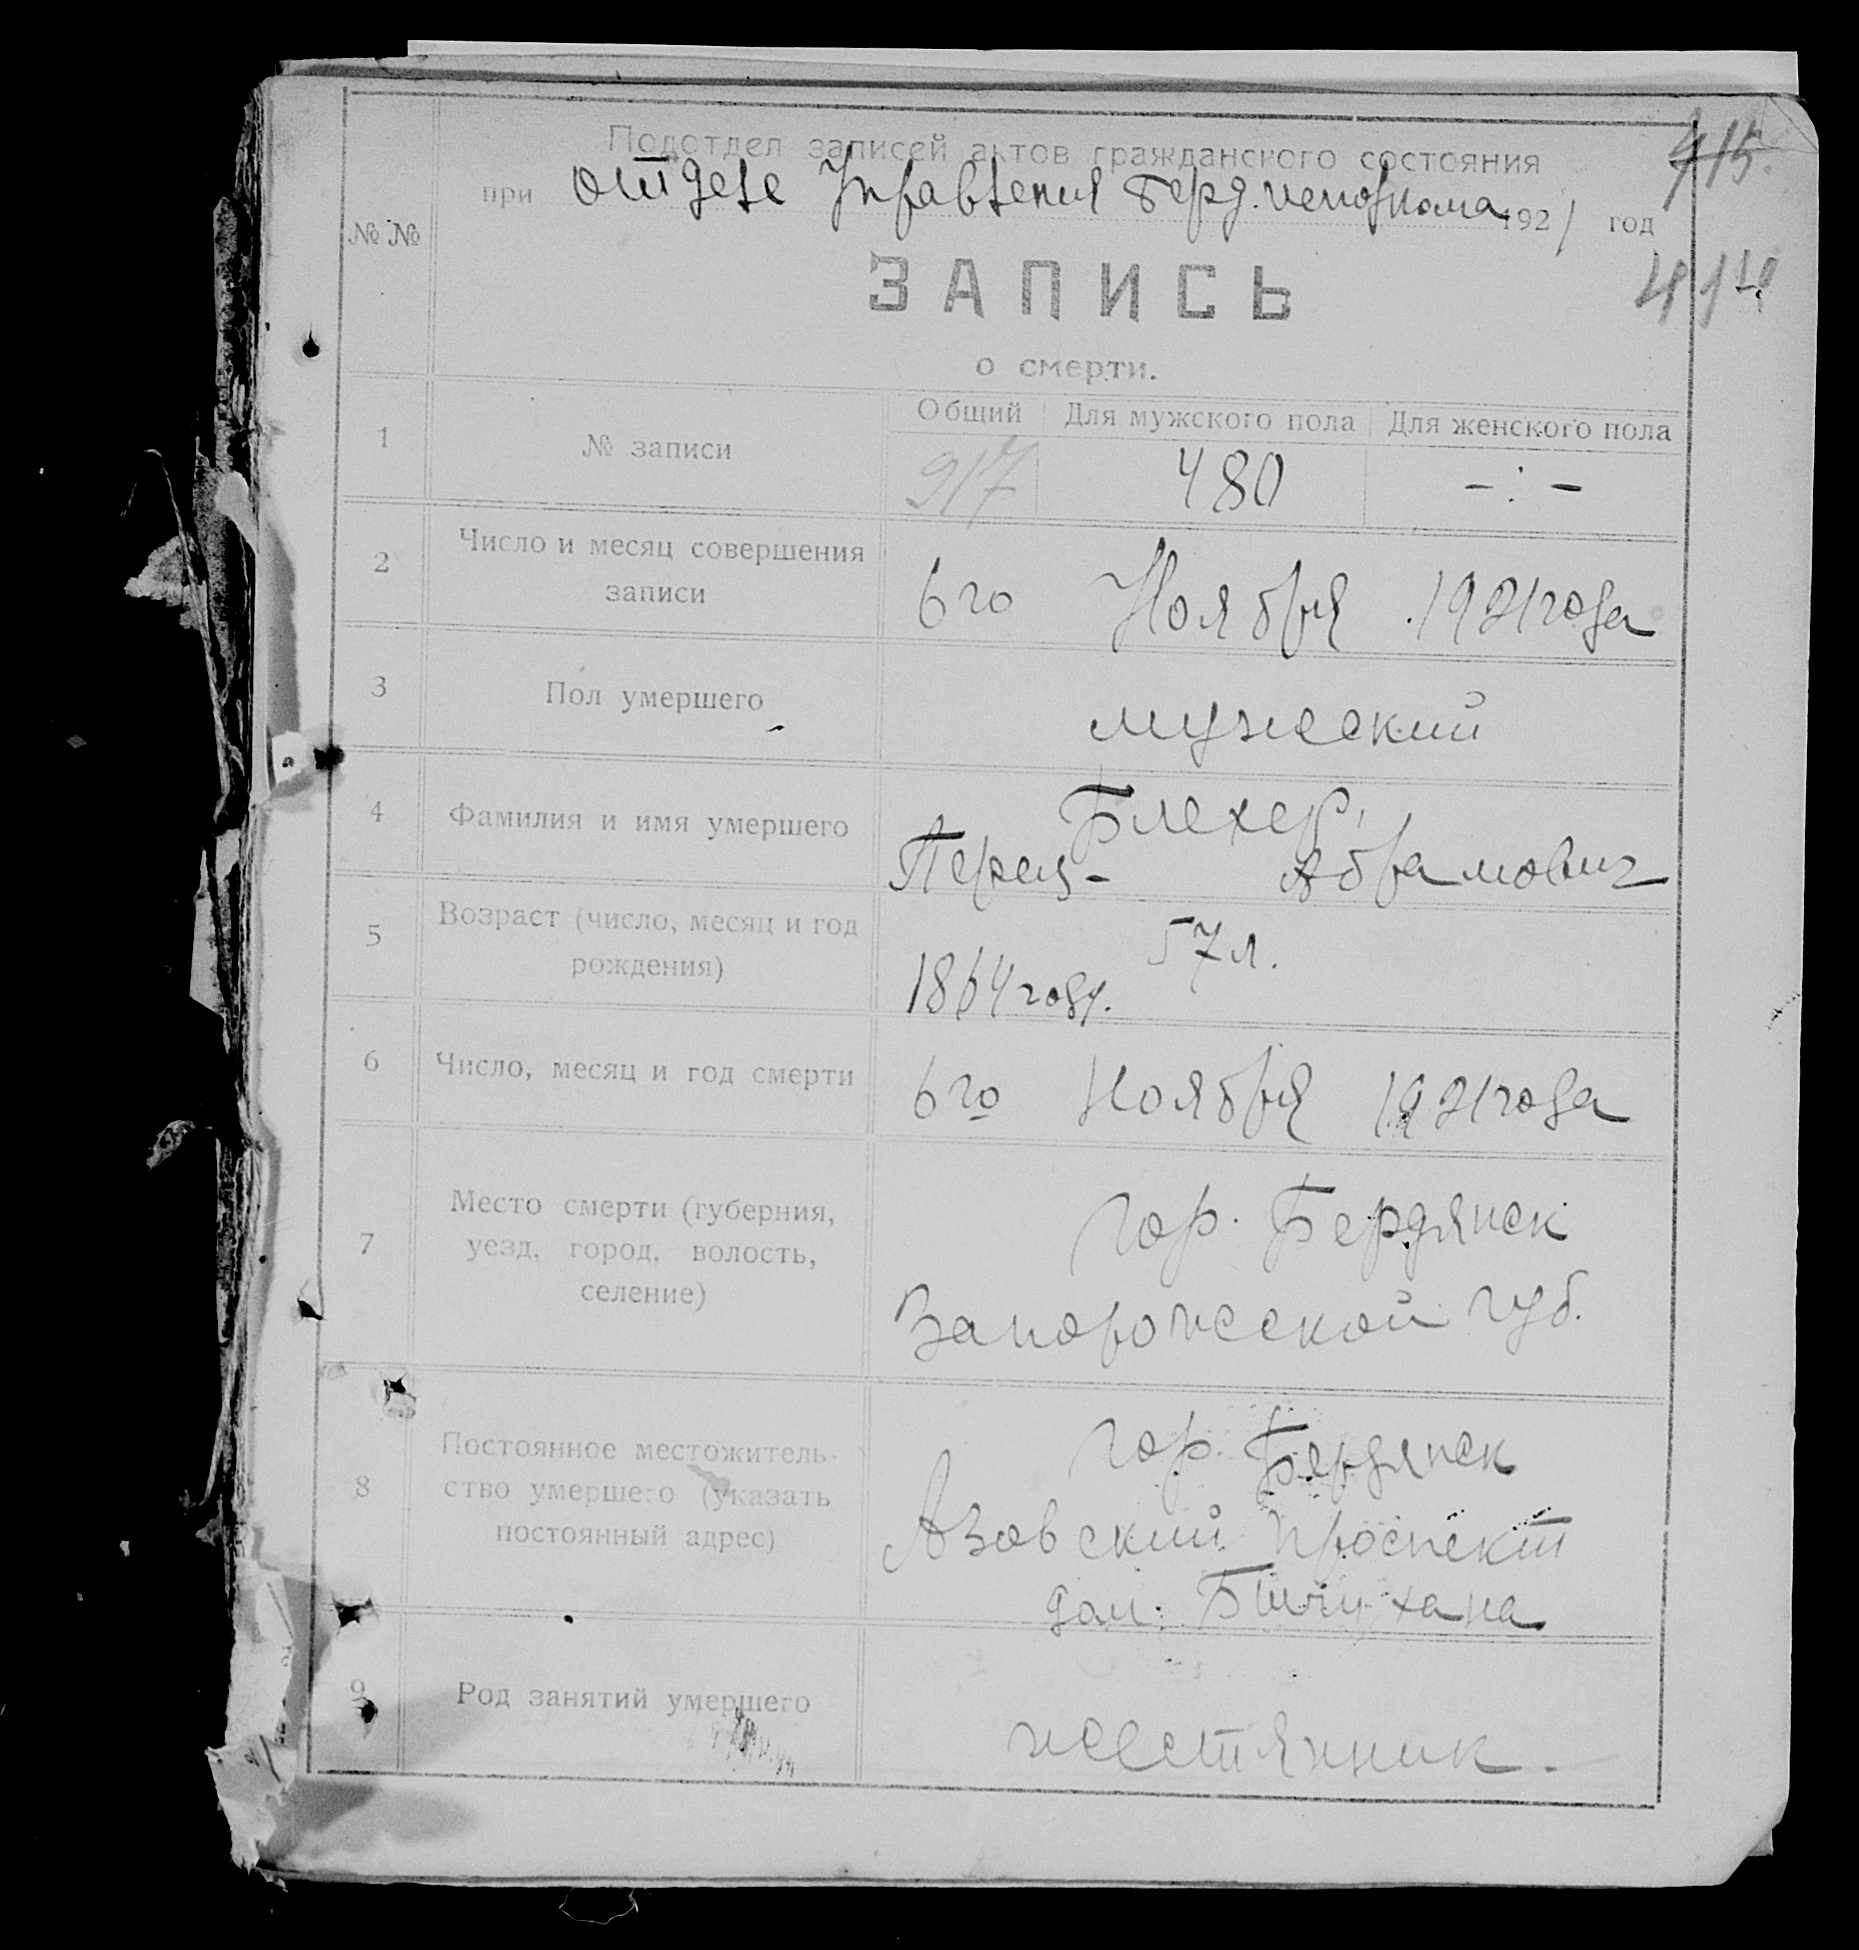 Подотдел записей актов гражданского состояния
415.
при отделе Управления Берд. исполкома 1921 год
№ №
ЗАПИСЬ
о смерти.
1
№ записи
Общий Для мужского пола Для женского пола
917 480 - : -
2
Число и месяц совершения
записи
6го Ноября 1921 года
3
Пол умершего
мужеский
4
Фамилия и имя умершего
Блехер,
Перец- Абрамович
5
Возраст (число, месяц и год
рождения)
57 л.
1864 году.
6
Число, месяц и год смерти
6го Ноября 1921 года
7
Место смерти (губерния,
уезд, город, волость,
селение)
гор. Бердянск
Запорожеской губ.
8
Постоянное местожитель-
ство умершего (указать
постоянный адрес)
гор. Бердянск
Азовский проспект
дом.
9
Род занятий умершего
жестянник.